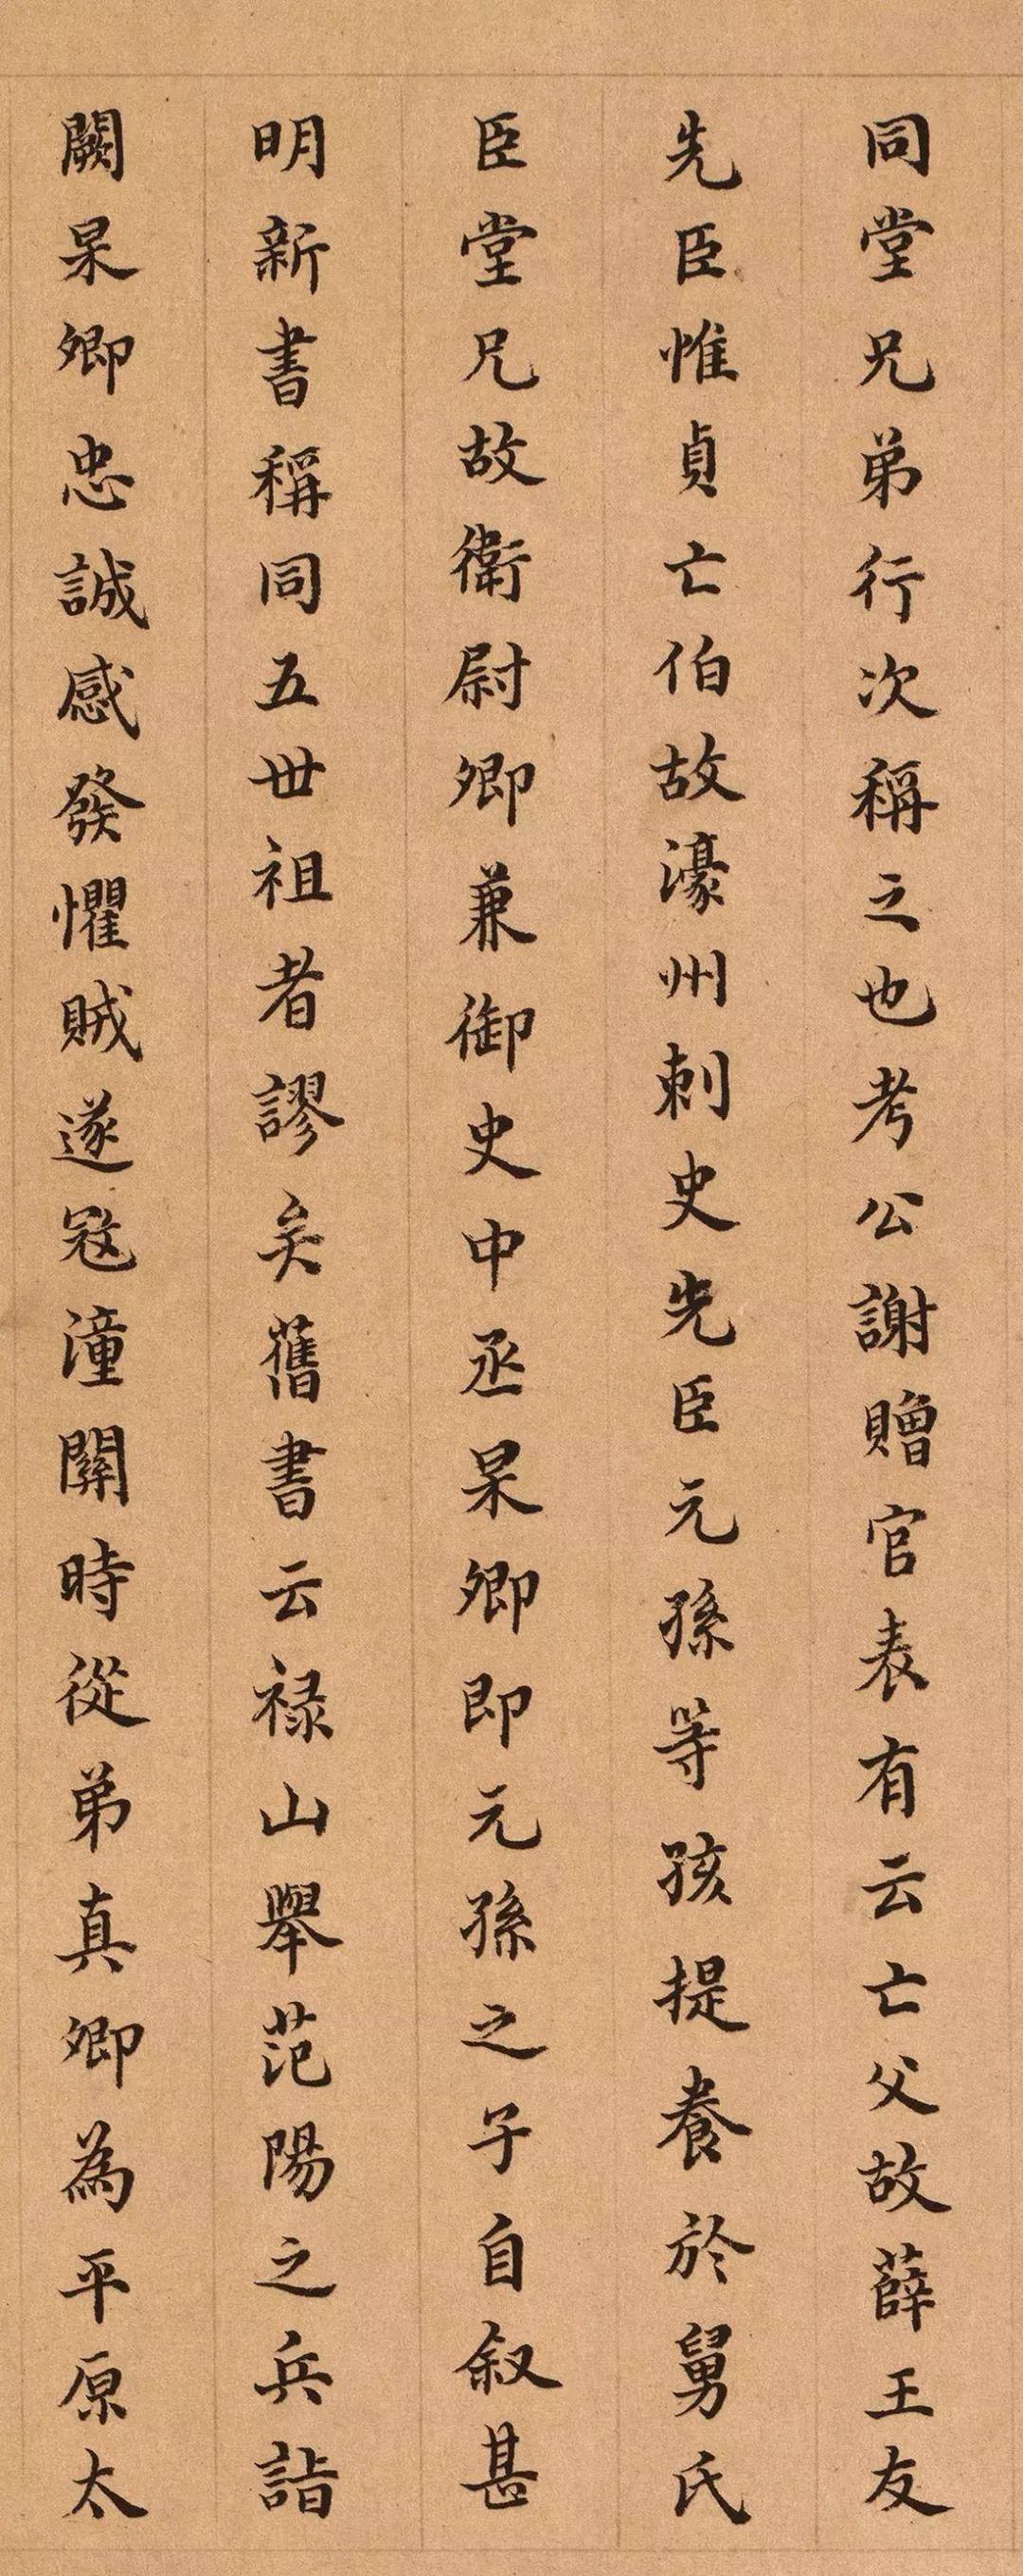 同堂兄弟行次稱之也考公謝贈官表有云亡父故薛王友
先臣惟貞亡伯故濠州刺史先臣元孫等孩提養於舅氏
臣堂兄故衛尉卿兼御史中丞杲卿即元孫之子自叙甚
明新書稱同五世祖者謬矣舊書云禄山舉范陽之兵詣
闕杲卿忠誠感發懼賊遂寇潼關時從弟真卿為平原太